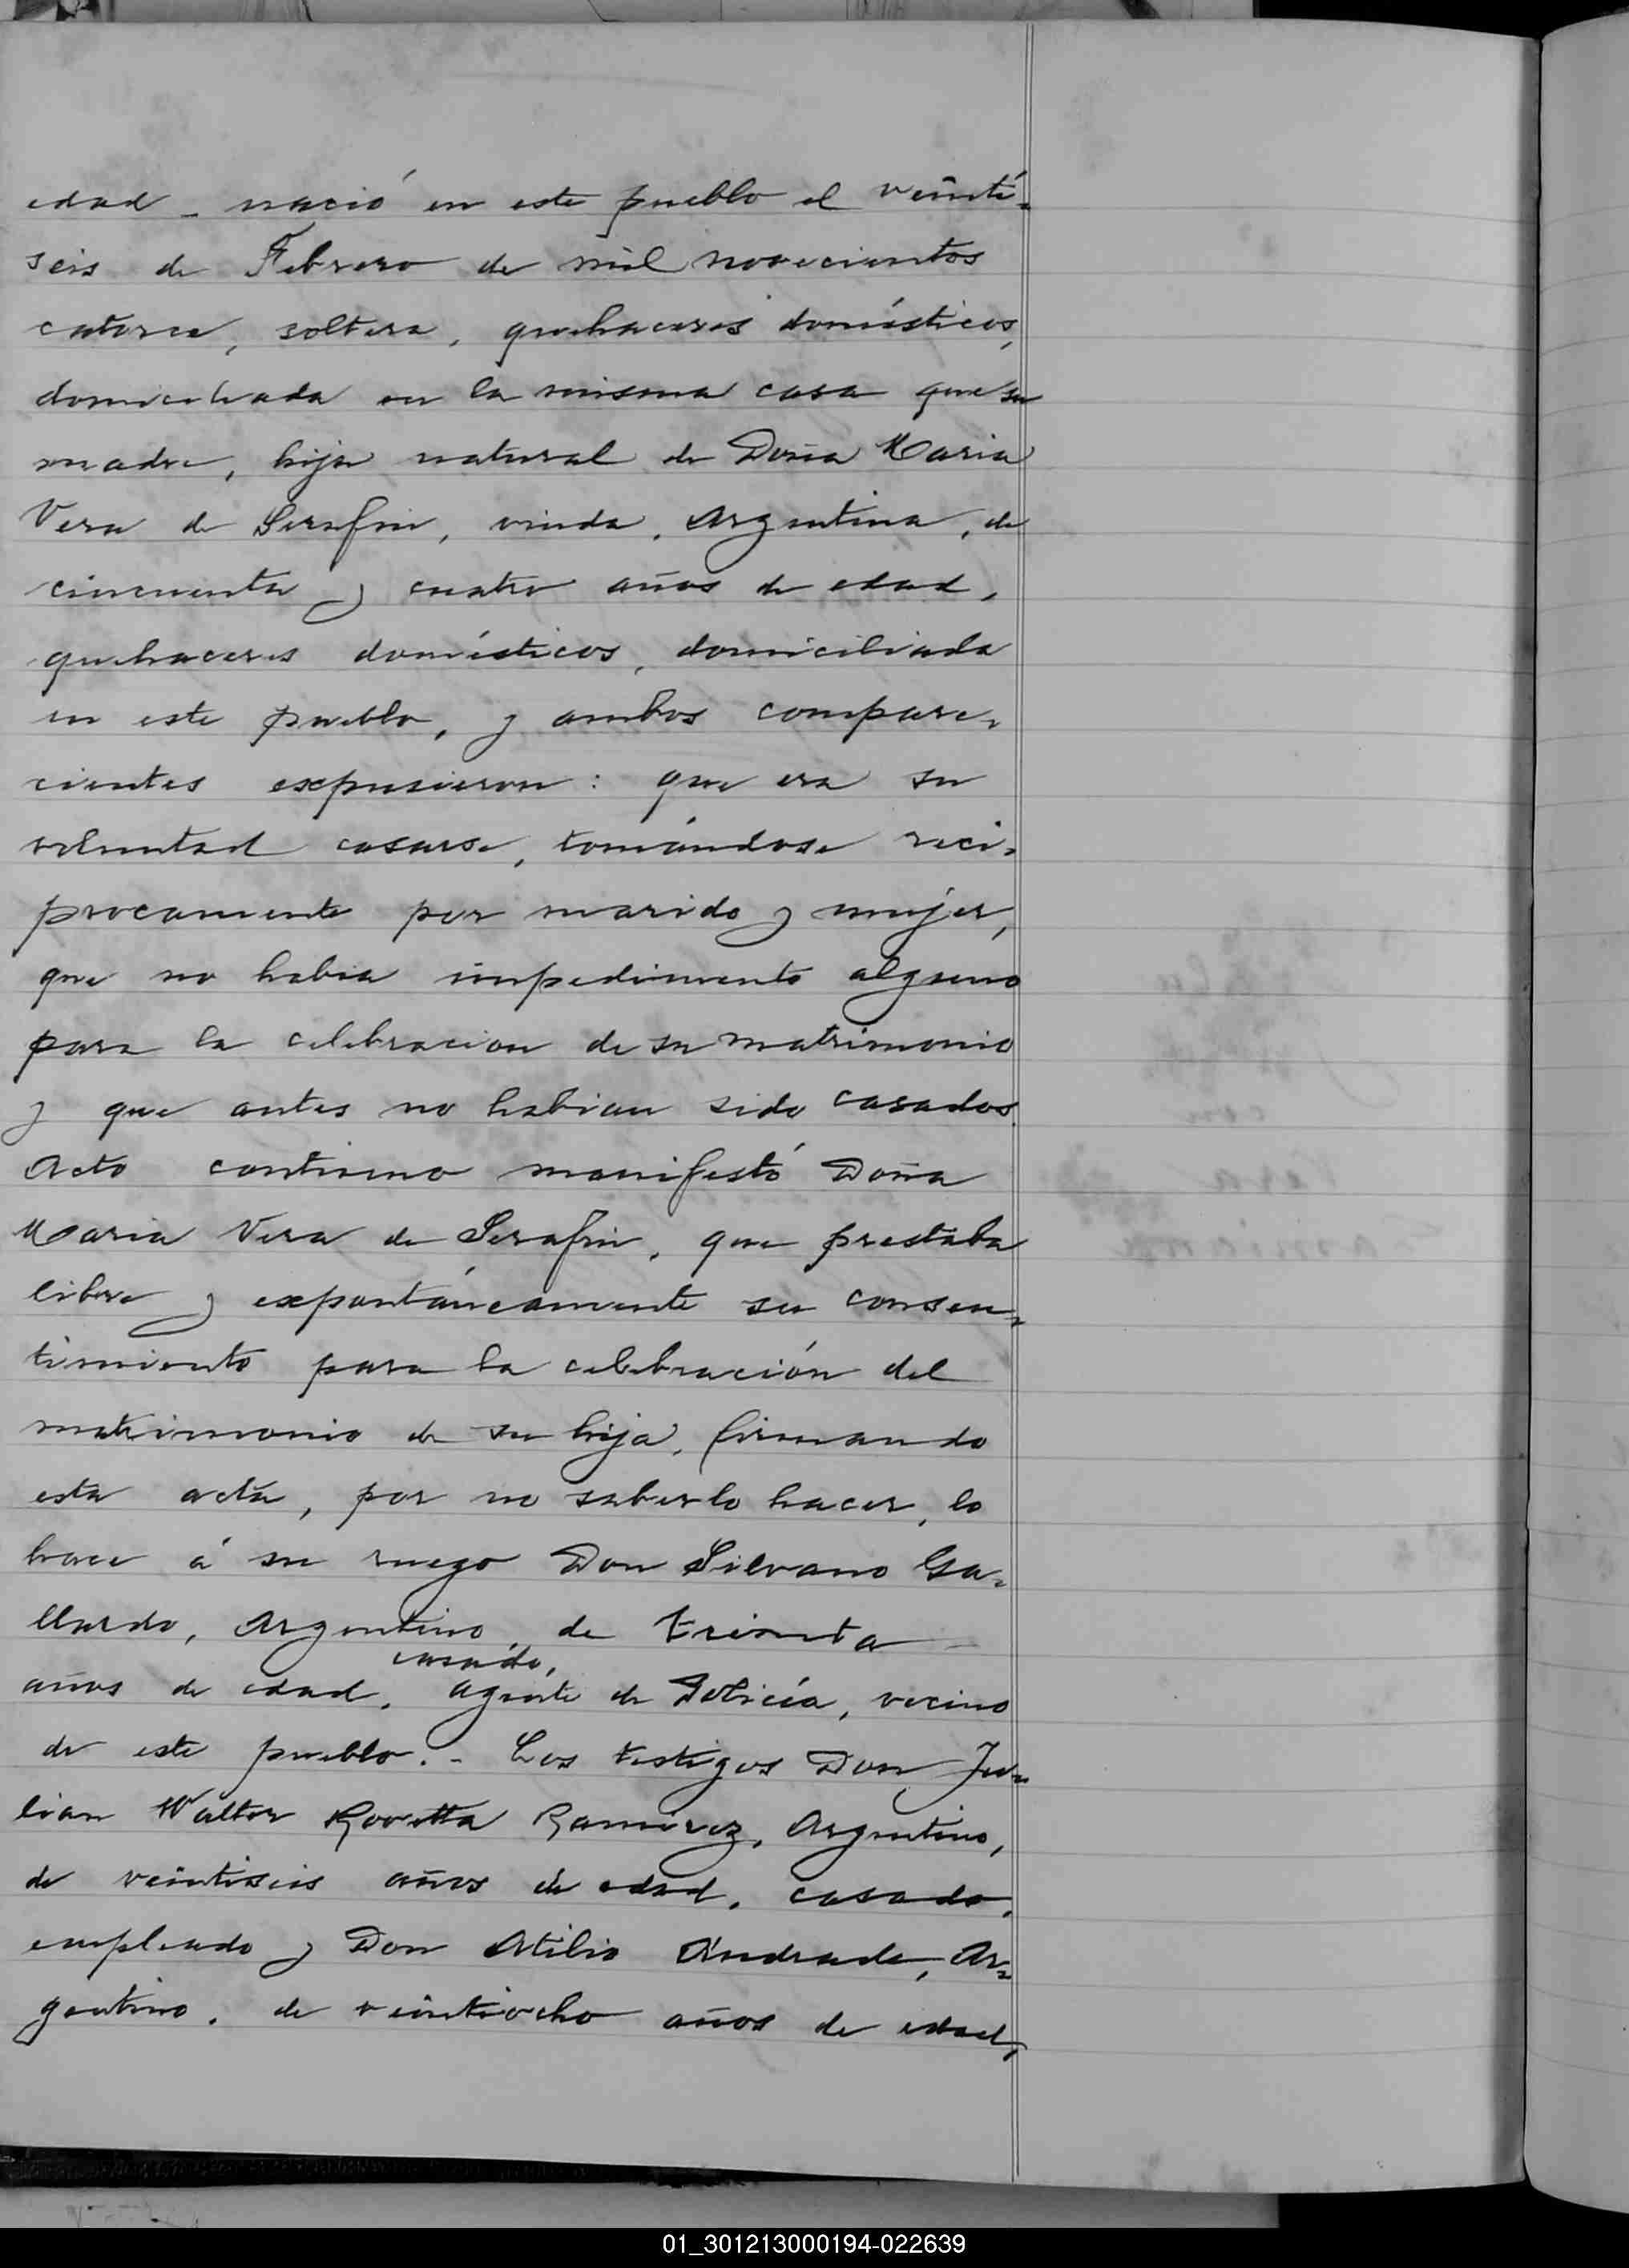 edad - nació en este pueblo el veinti-
seis de Febrero de mil novecientos
catorce, soltera, quehaceres domésticos,
domiciliada en la misma casa que su
madre, hija natural de Doña Maria
Vera de Serafin, viuda, Argentina, de
cincuenta y cuatro años de edad,
quehaceres domésticos, domiciliada
en este pueblo, y ambos compare-
cientes expusieron: que era su
voluntad casarse, tomándose reci-
procamente por marido y mujer,
que no habia impedimento alguno
para la celebracion de su matrimonio
y que antes no habian sido casados.
Acto continuo manifestó Doña
Maria Vera de Serafin, que prestaba
libre y expontáneamente su consen-
timiento para la celebración del
matrimonio de su hija, firmando
esta acta, por no saberlo hacer, lo
hace á su ruego Don Silvano Ga-
llardo, Argentino, de treinta
casado,
años de edad, agente de Policía, vecino
de este pueblo. - Los testigos Don Ju-
lian Walter Rovetta Ramirez, Argentino,
de veintiseis años de edad, casado,
empleado y Don Atilio Andrade, Ar-
gentino, de veintiocho años de edad,
01_301213000194-022639